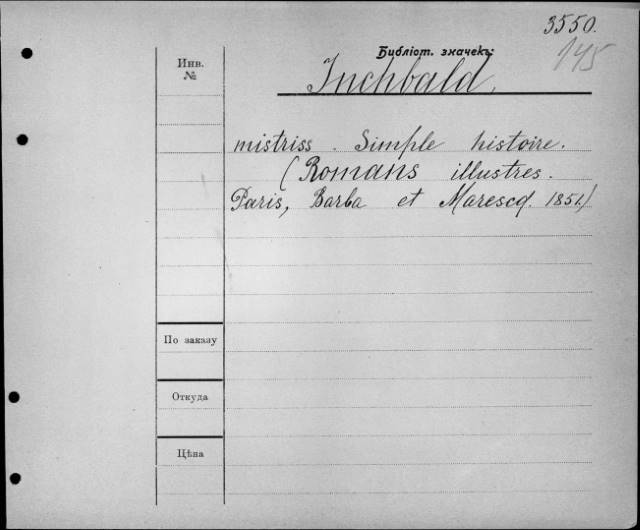 3550.
Библіот. значекъ:
145
Инв.
№
Inchbald.
mistriss. Simple histoire.
(Romans illustres.
Paris, Barba et Marescq. 1851)
По заказу
Откуда
Цѣна